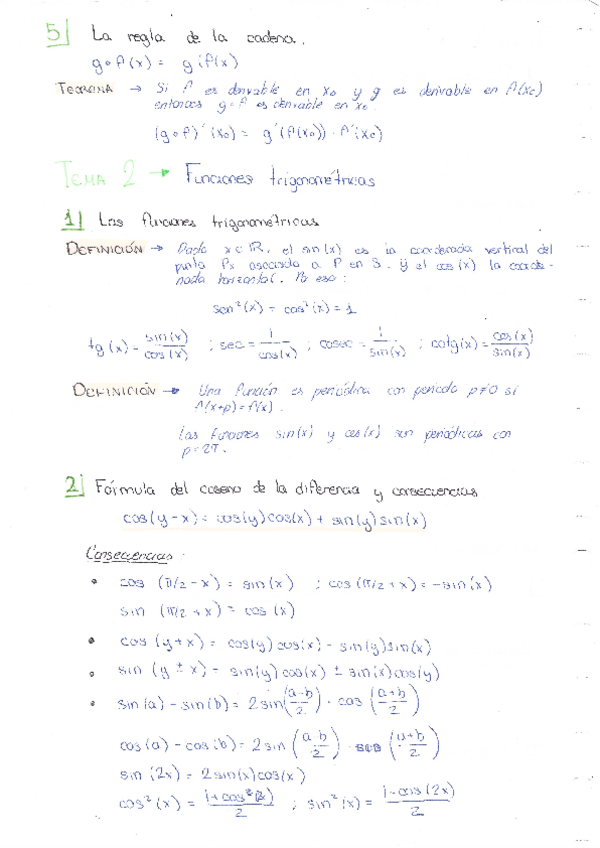 5| La regla de la cadena.
g∘f(x) = g(f(x)
TEOREMA → Si f es derivable en x₀ y g es derivable en f(x₀)
entonces g∘f es derivable en x₀.
(g∘f)'(x₀) = g'(f(x₀))·f'(x₀)
TEMA 2 → Funciones trigonométricas
1| Las funciones trigonométricas
DEFINICIÓN → Dado x∈ℝ, el sin(x) es la coordenada vertical del
punto Ps asociado a P en S. Y el cos(x) la coorde-
nada horizontal. Por eso:
sen²(x) - cos²(x) = 1
tg(x) = sin(x)/cos(x) ; sec = 1/cos(x) ; cosec = 1/sin(x) ; cotg(x) = cos(x)/sin(x)
DEFINICIÓN → Una función es periódica con periodo p≠0 si
f(x+p) = f(x).
Las funciones sin(x) y cos(x) son periódicas con
p = 2π.
2| Fórmula del coseno de la diferencia y consecuencias
cos(y-x) = cos(y)cos(x) + sin(y)sin(x)
Consecuencias:
• cos (π/2 - x) = sin(x) ; cos(π/2 + x) = -sin(x)
sin (π/2 + x) = cos (x)
• cos (y+x) = cos(y)cos(x) - sin(y)sin(x)
• sin (y ± x) = sin(y)cos(x) ± sin(x)cos(y)
• sin(a) - sin(b) = 2sin((a-b)/2) · cos((a+b)/2)
cos(a) - cos(b) = 2sin((a b)/2) · ((a+b)/2)
sin(2x) = 2sin(x)cos(x)
cos²(x) = /2 ; sin²(x) = (1-cos(2x))/2